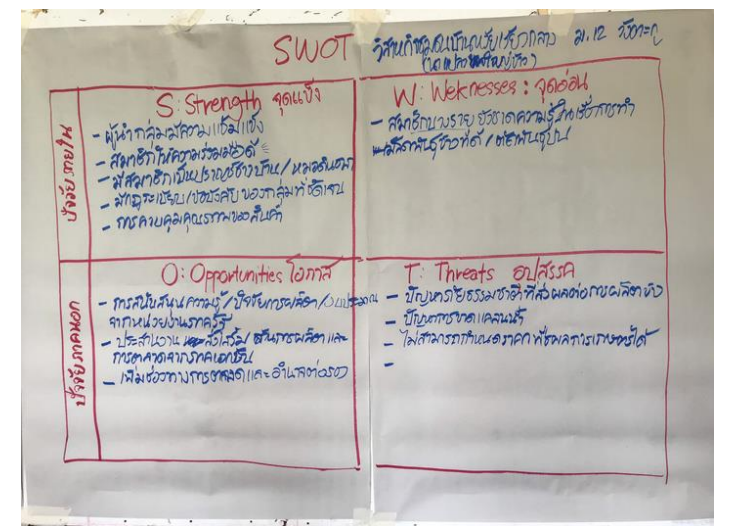 SWOT วิสาหกิจชุมชนบ้านห้วยเรียวกลาง ม.12
(นาแปลงใหญ่ข้าว)
S: Strength จุดแข็ง
ปัจจัยภายใน
- ผู้นำกลุ่มมีความเข้มแข็ง
- สมาชิกให้ความร่วมมือดี
- มีสมาชิกเป็นปราชญ์ชาวบ้าน/หมอดินอาสา
- มีกฎระเบียบ/ข้อบังคับของกลุ่มที่ชัดเจน
- การควบคุมคุณภาพของสินค้า
W: Weknesses: จุดอ่อน
- สมาชิกบางรายยังขาดความรู้ในเรื่องการทำ
O: Opportunities โอกาส
ปัจจัยภาคนอก
- การสนับสนุนความรู้/ปัจจัยการผลิต/งบประมาณ
จากหน่วยงานภาครัฐ
- ประสานงาน ส่งเสริม ด้านการผลิตและ
การตลาดจากภาคเอกชน
- เพิ่มช่องทางการตลาดและอำนาจต่อรอง
T: Threats อุปสรรค
- ปัญหาภัยธรรมชาติที่ส่งผลต่อการผลิต
- ปัญหาการขาดแคลนน้ำ
- ไม่สามารถกำหนดราคาผลผลิตการเกษตรได้
-